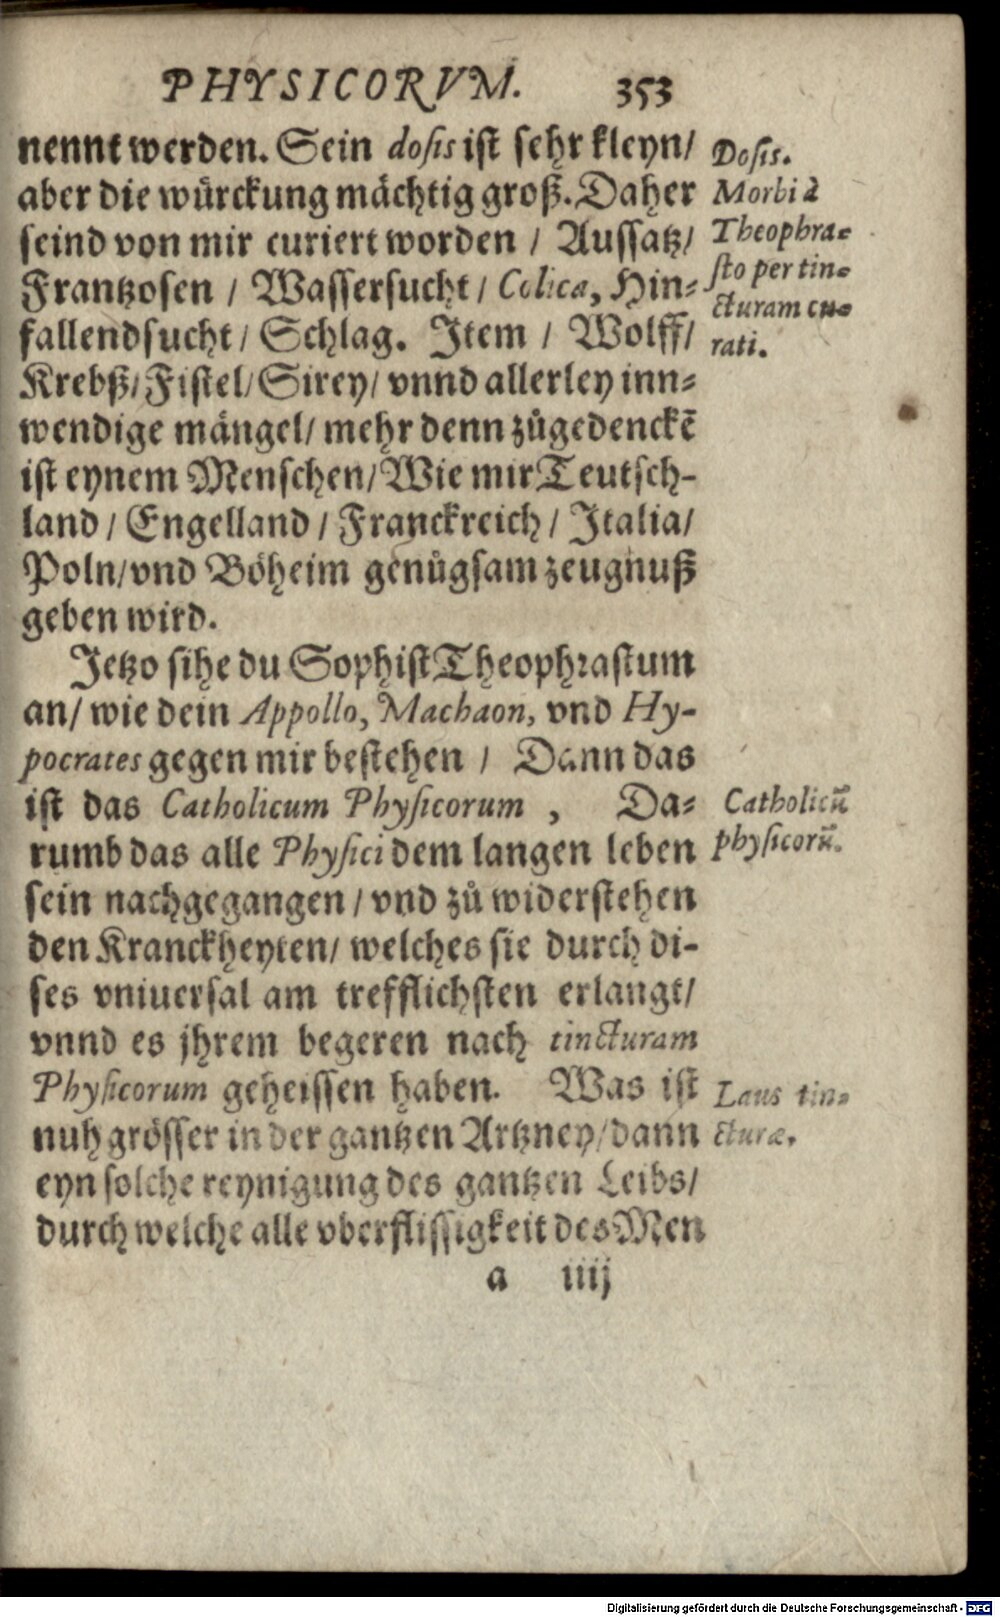 PHYSICORVM. 353
nennt werden. Sein dosis ist sehr kleyn/
aber die würckung mächtig groß. Daher
seind von mir curiert worden / Aussatz/
Frantzosen / Wassersucht / Colica, Hin⸗
fallendsucht / Schlag. Item / Wolff/
Krebß/ Fistel/ Sirey/ vnnd allerley inn⸗
wendige mängel/ mehr denn zůgedenckē
ist eynem Menschen/ Wie mir Teutsch-
land / Engelland / Franckreich / Italia/
Poln/ vnd Böheim genůgsam zeugnuß
geben wird.
Jetzo sihe du Sophist Theophrastum
an/ wie dein Appollo, Machaon, vnd Hy-
pocrates gegen mir bestehen / Dann das
ist das Catholicum Physicorum , Da⸗
rumb das alle Physici dem langen leben
sein nachgegangen / vnd zů widerstehen
den Kranckheyten/ welches sie durch di-
ses vniuersal am trefflichsten erlangt/
vnnd es jhrem begeren nach tincturam
Physicorum geheissen haben. Was ist
nuh grösser in der gantzen Artzney/ dann
eyn solche reynigung des gantzen Leibs/
durch welche alle vberflissigkeit des Men
a iiij
Dosis.
Morbi à
Theophra⸗
sto per tin⸗
cturam cu⸗
rati.
Catholicū
physicorū.
Laus tin⸗
cturæ.
Digitalisierung gefördert durch die Deutsche Forschungsgemeinschaft - DFG